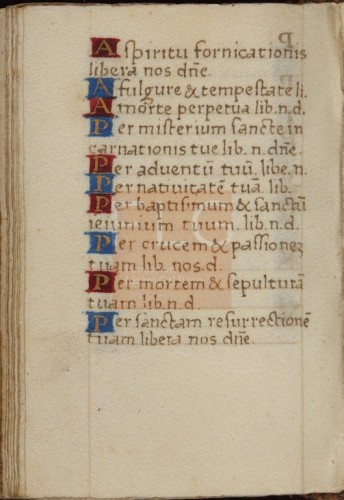 A spiritu fornicationis
libera nos dn̄e.
A fulgure & tempestate li.
A morte perpetua lib. n. d.
Per misterium sancte in
carnationis tue lib. n. dn̄e.
Per adventū tuū. libe. n.
Per nativitatē tuā. lib.
Per baptismum & sanctū
ieiunium tuum. lib. n. d.
Per crucem & passionez
tuam lib. nos. d.
Per mortem & sepulturā
tuam lib. n. d
Per sanctam resurrectionē
tuam libera nos. dn̄e.